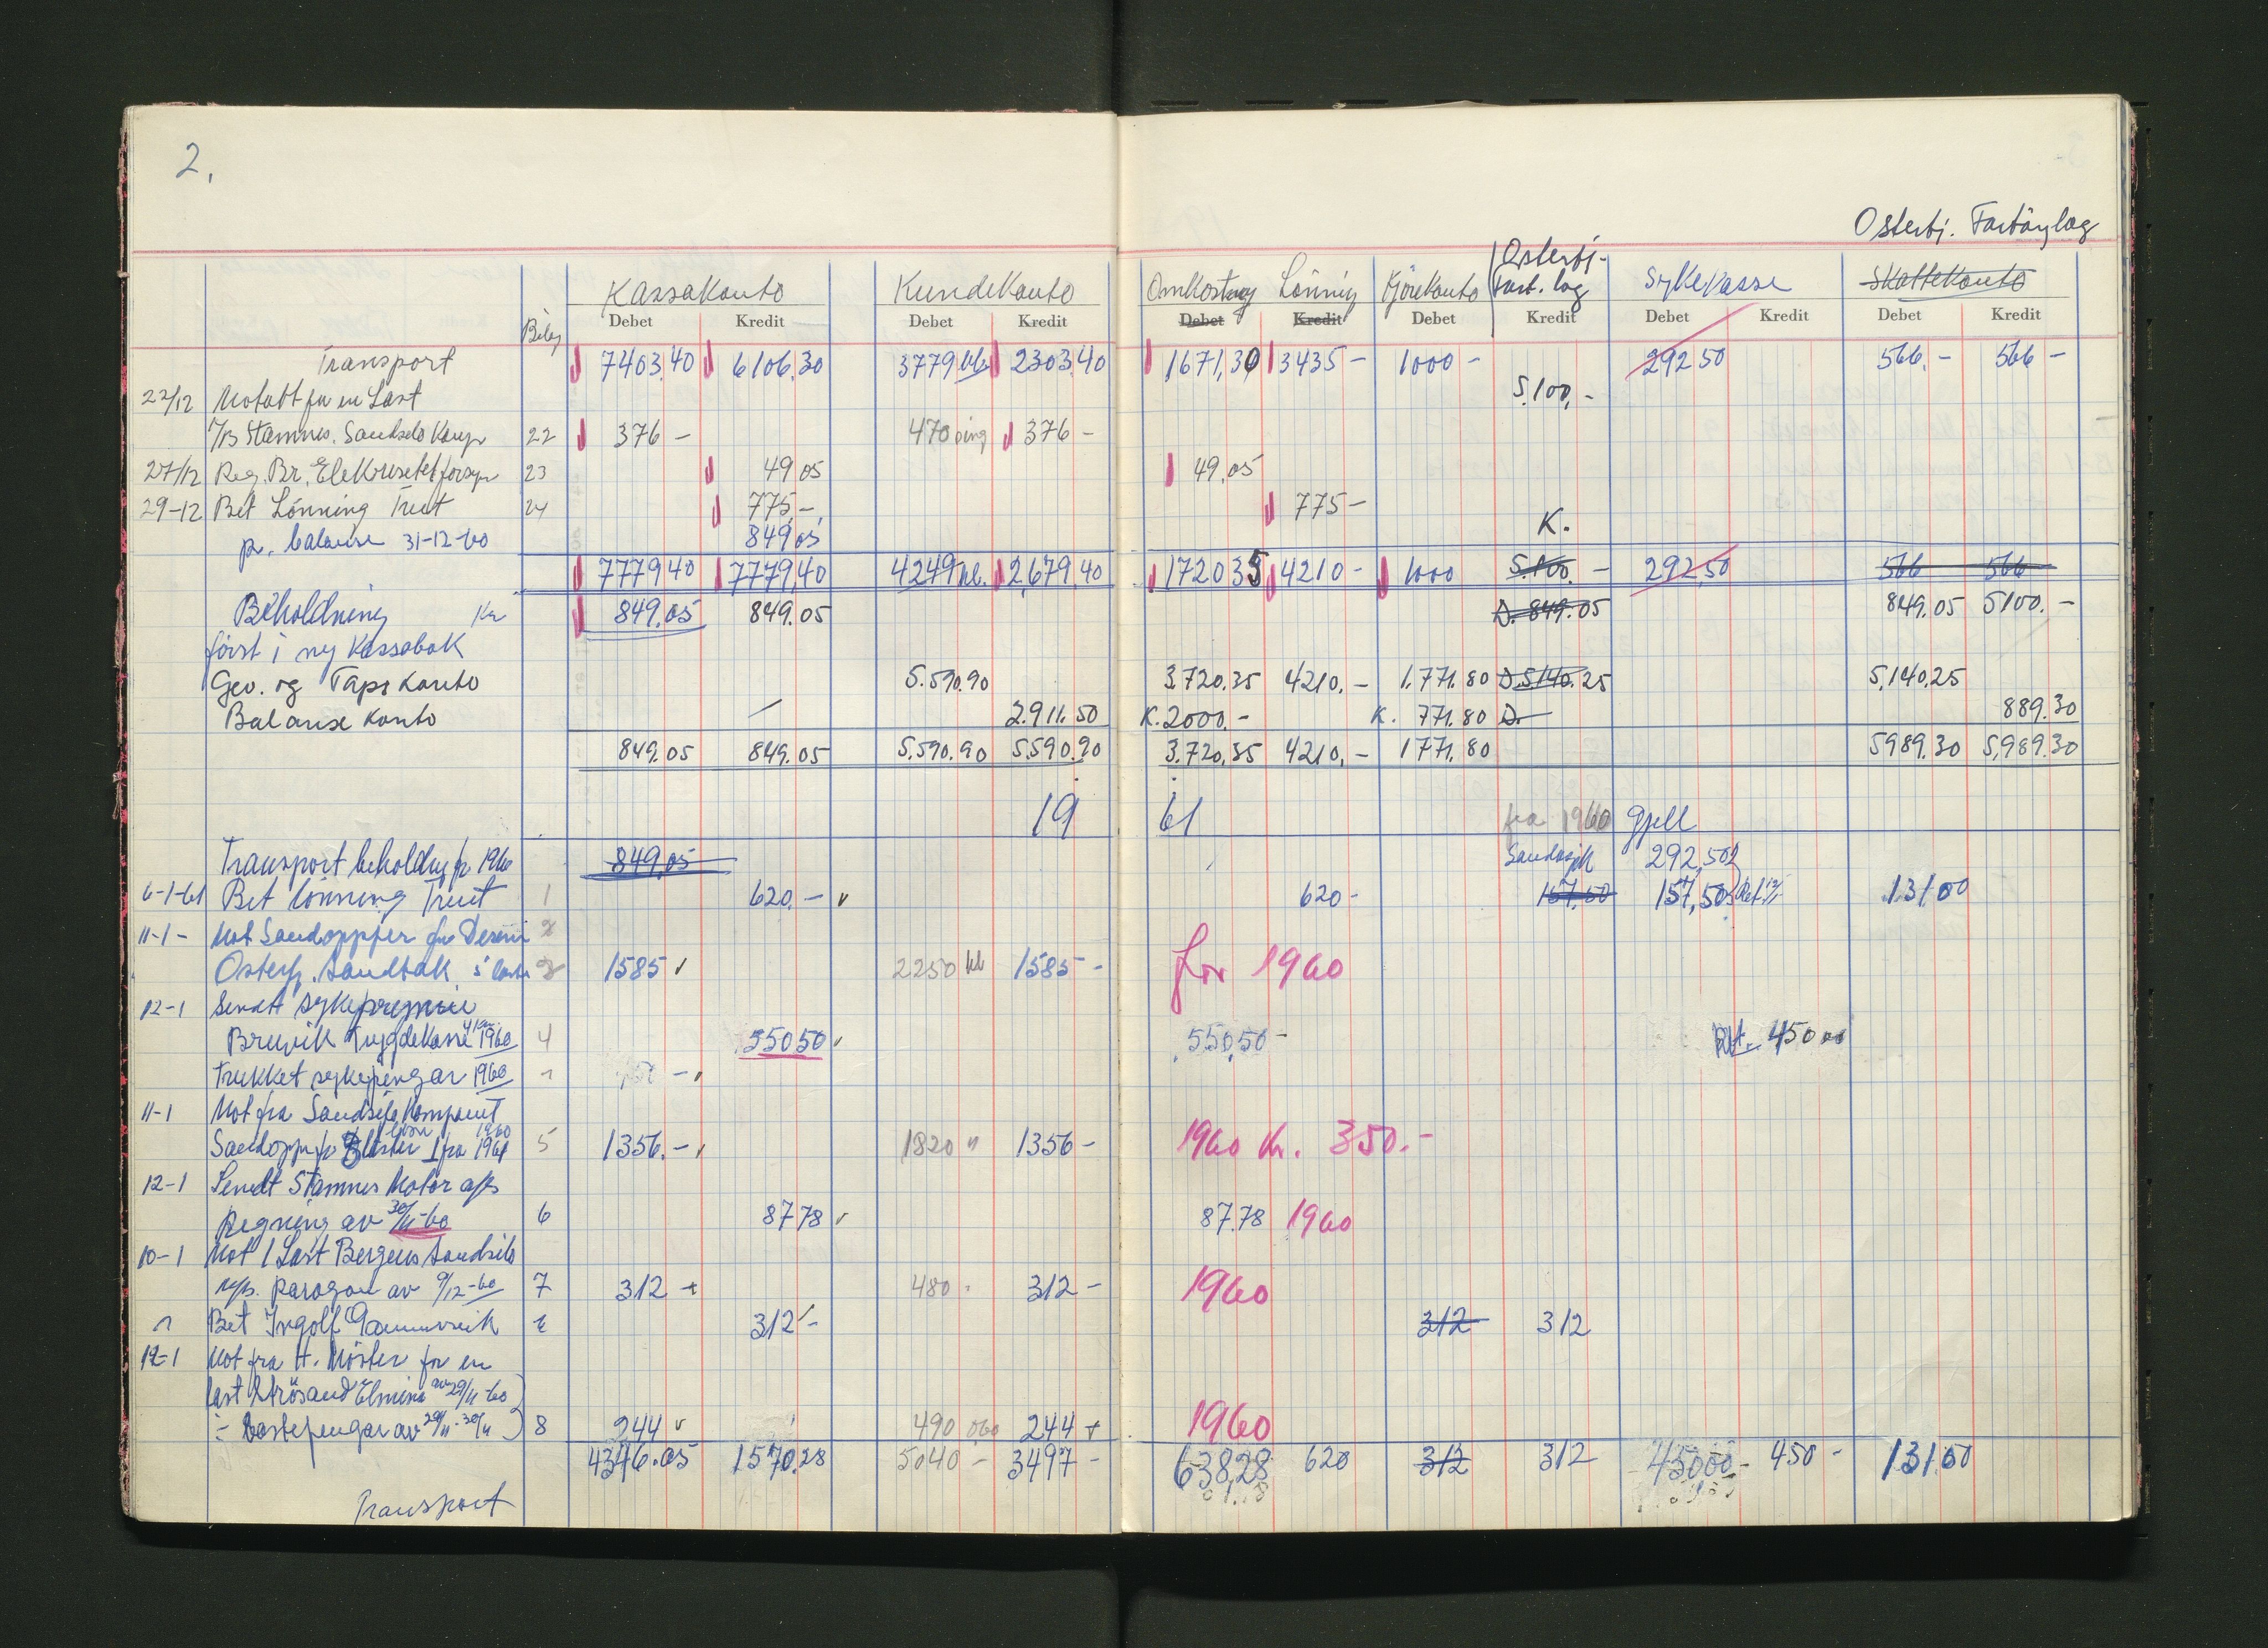 2.
Osterfj. Fartøylag
Bilag Kassakonto Kundekonto Omkostning Lønning Kjørekonto Osterfj. Fart. lag Sykekasse Skattekonto
Debet Kredit Debet Kredit Debet Kredit Debet Kredit Debet Kredit Debet Kredit
Transport 7403.40 6106.30 3779 2303.40 1671,30 3435 - 1000 - 292 50 566.- 566 -
22/12 Motatt for en Last 5.100,-
M/B Stamnes. Sandsilo Komp 22 376 - 470 376 -
27/12 Reg. Br. Elektrisitetsforsyn 23 49 05 49.05
29-12 Bet Lønning Truet 24 775,- 775 - K.
pr. balanse 31-12-60 849 05
7779 40 7779,40 4249 hl. 2,679.40 1720 35 4210 - 1000 5.100.- 292,50 566 566
Beholdning Kr 849.05 849.05 D. 849.05 849.05 5100.-
ført i ny Kassabok
Gev. og Taps Konto 5.590.90 3.720.35 4210.- 1.771.80 D.5140.25 5,140.25
Balanse konto 2.911.50 K. 2000.- K. 771.80 D. 889.30
849.05 849.05 5,590.90 5.590.90 3.720,35 4210.- 1771.80 5989.30 5,989.30
19 61 fra 1960 gjell
Transport beholdng fr 1960 849,05 292,50
6-1-61 Bet lønning Truet 1 620.- 620 - 157.50 157,50 131 00
11-1- Mot Sandoppfør 2
Osterfj. Sandtak 1585 2250 hl 1585 - for 1960
12-1 Sendt sykepremie
Bruvik Trygdekasse 1960 4 550 50 550,50 - 450 00
Trukket sykepengar 1960
11-1 Mot fra Sandsilo Kompanit
Sandopp 1960 1 fra 1961 5 1356.- 1820 " 1356 - 1960 kr. 350.-
12-1 Sendt Stamnes Motor
Regning av 30/11-60 6 87 78 87.78 1960
10-1 Mot 1 Last Bergens Sandsilo
paragon av 9/12-60 7 312 480 312 - 1960
Bet Ingolf 312 - 312 312
12-1 Mot fra H. Møster for en
last Strøsand Elmina av 29/11-60
av 29/11-30/11 8 244 490 244 1960
4346.05 1570.28 5040 - 3497 - 638,28 620 312 312 450 00 450 - 131.00
Transport